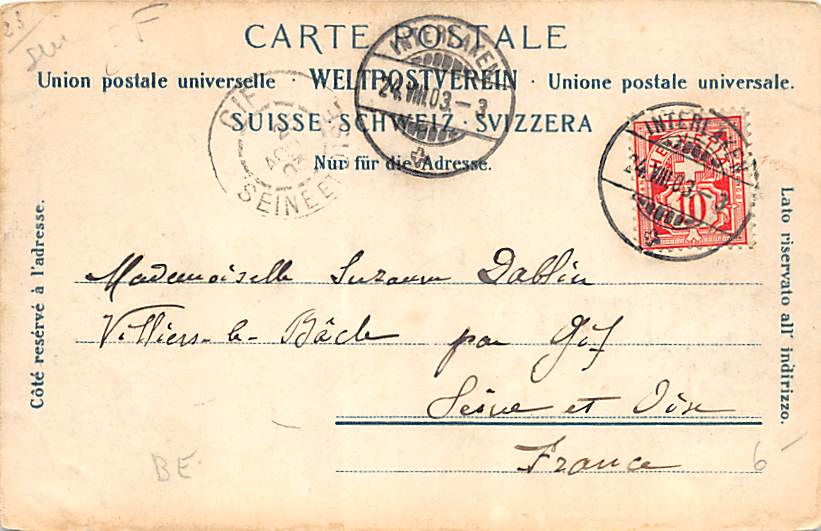 CARTE POSTALE
Union postale universelle · WELTPOSTVEREIN · Unione postale universale.
SUISSE · SCHWEIZ · SVIZZERA
Nur für die Adresse.
Côté reservé à l'adresse.
Lato riservato all' indirizzo.
INTERLAKEN
24.VIII.03.-3
INTERLAKEN
24.VIII.03.-3
HELVETIA
10
GIF
AOUT
03
SEINE ET OISE
Mademoiselle Suzanne Dablin
Villiers-le-Bâcle par Gif
Seine et Oise
France
23
F
BE
6